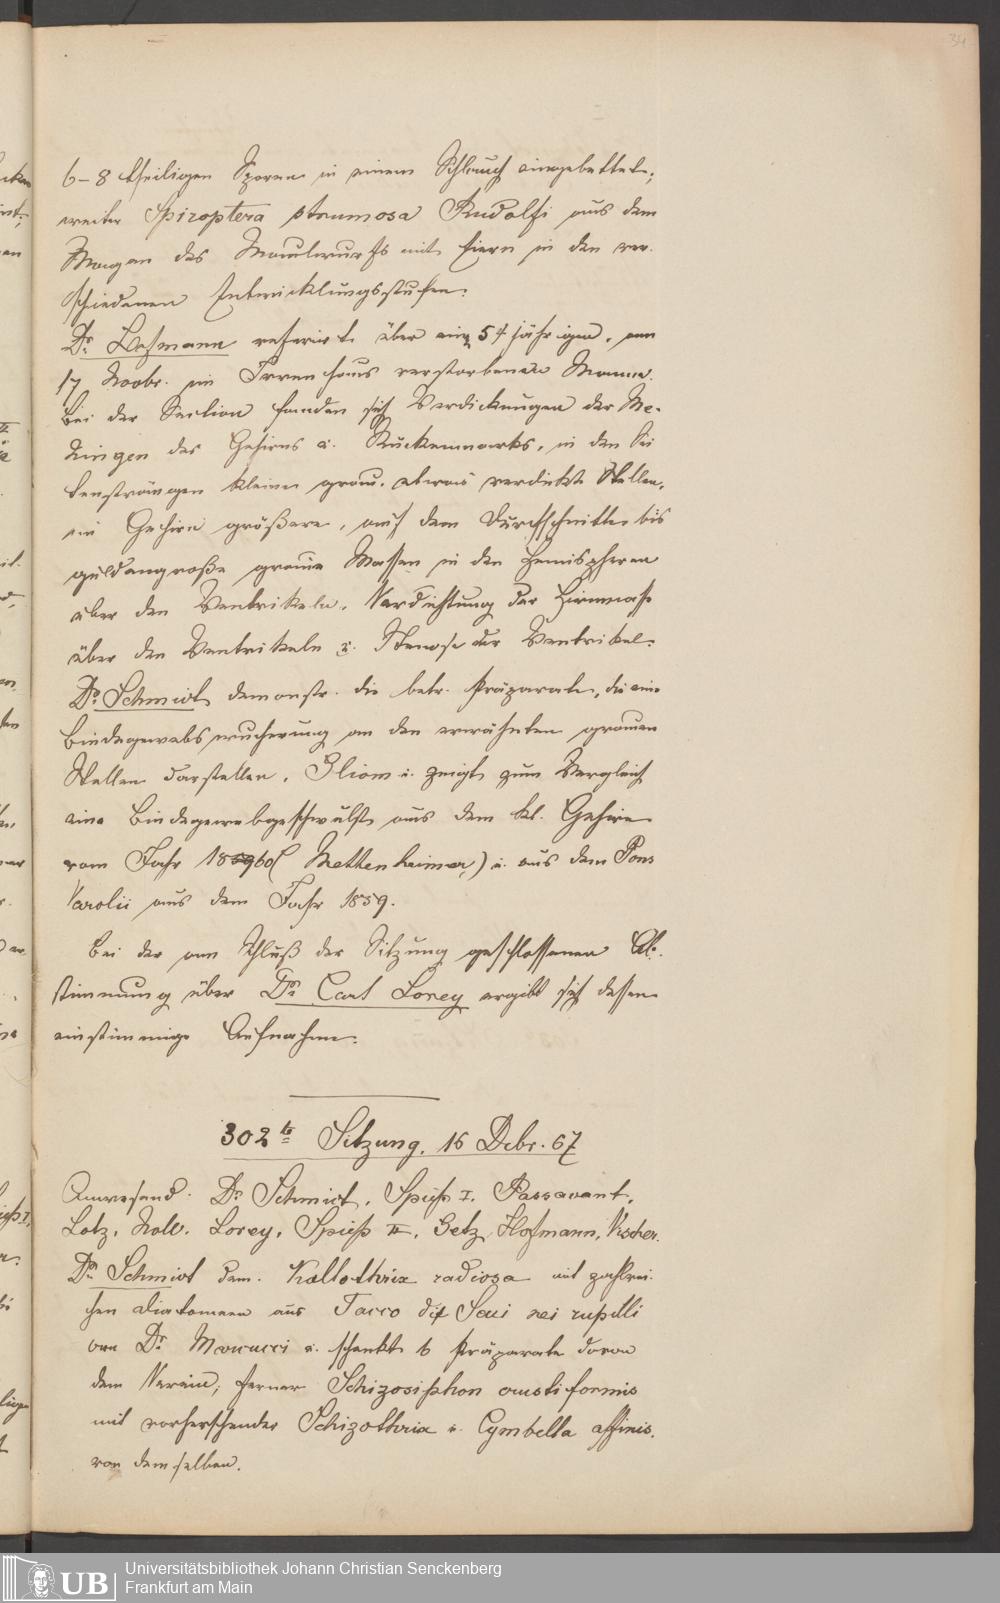 34
6–8 theiligen Sporen in einem Schlauch eingebettet;
weiter Spiroptera strumosa Rudolfi aus dem
Magen des Maulwurfs mit Eiern in den ver-
schiedenen Entwicklungsstufen.
Dr. Hofmann referirt über ein 54 jährigen, am
17 Novbr. im Irrenhaus verstorbenen Mann.
Bei der Section fanden sich Verdickungen der Me-
ningen des Gehirns u. Rückenmarks, in den Sei
tensträngen kleine grau, etwas verdickte Stellen,
im Gehirn größere, auf dem Durchschnitte bis
guldengroße graue Massen in den Hemispheren
über den Ventrikeln, Verdichtung der Hirnmasse
über den Ventrikeln u. Stenose der Ventrikel.
Dr. Schmidt demonstr. die betr. Präparate, die eine
Bindegewebswucherung an den erwähnten grauen
Stellen darstellen, Gliom u. zeigt zum Vergleich
eine Bindegewebgeschwulst aus dem kl. Gehirn
vom Jahr 1860 (Mettenheimer) u. aus dem Pons
Varolii aus dem Jahr 1859.
Bei der am Schluß der Sitzung geschlossenen Ab-
stimmung über Dr. Carl Lorey ergibt sich dessen
einstimmige Aufnahme.
302te Sitzung. 16 Dcbr. 67
Anwesend: Dr. Schmidt, Spieß I, Passavant,
Lotz, Noll, Lorey, Spieß II, Getz, Hofmann, Vischer.
Dr. Schmidt dem. Kallothrix radiosa mit zahlrei-
chen Diatomeen aus Tacco di Seui nei rupilli
von Dr. Marcucci u. schenkt 6 Präparate davon
dem Verein; ferner Schizosiphon
mit vorherschender Schizothrix u. Cymbella affinis.
von demselben.
UB
Universitätsbibliothek Johann Christian Senckenberg
Frankfurt am Main